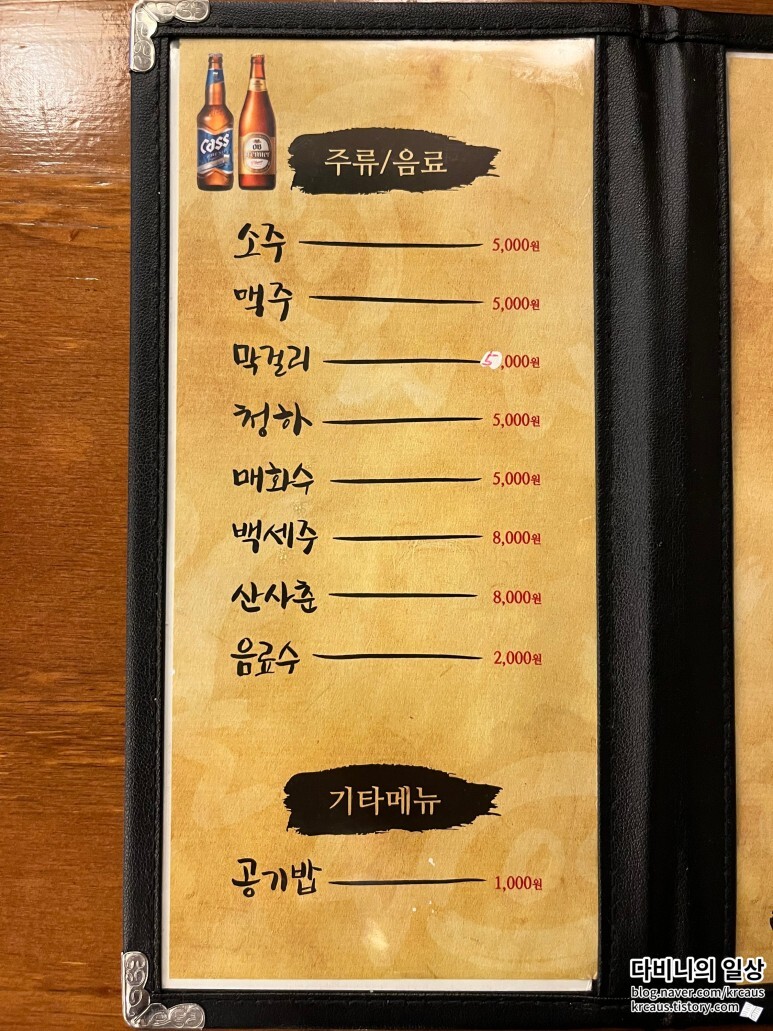 Cass
OB
PREMIER
주류/음료
소주 5,000원
맥주 5,000원
막걸리 5,000원
청하 5,000원
매화수 5,000원
백세주 8,000원
산사춘 8,000원
음료수 2,000원
기타메뉴
공기밥 1,000원
다비니의 일상
blog.naver.com/krcaus
krcaus.tistory.com